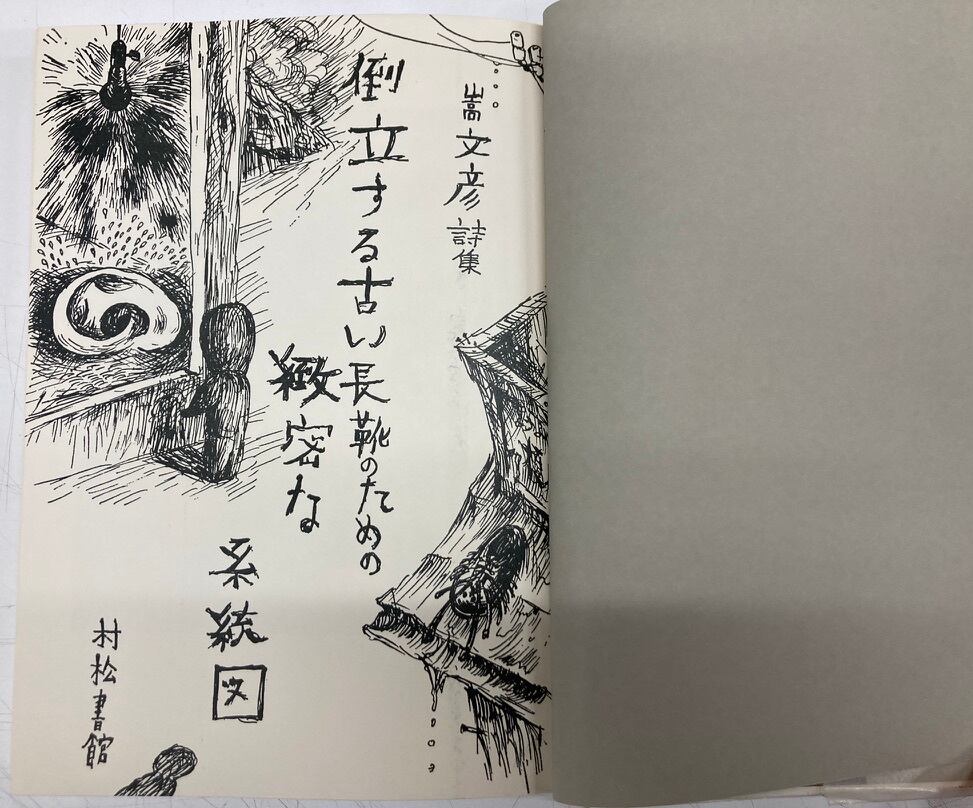 嵩文彦詩集
倒立する古い長靴のための
緻密な
系統図
村松書館